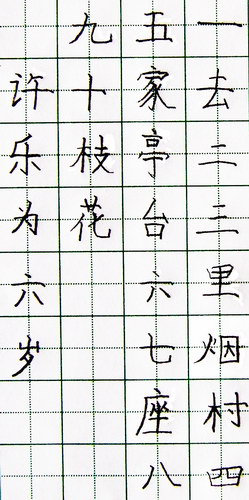 一去二三里烟村四
五家亭台六七座八
九十枝花
许乐为六岁